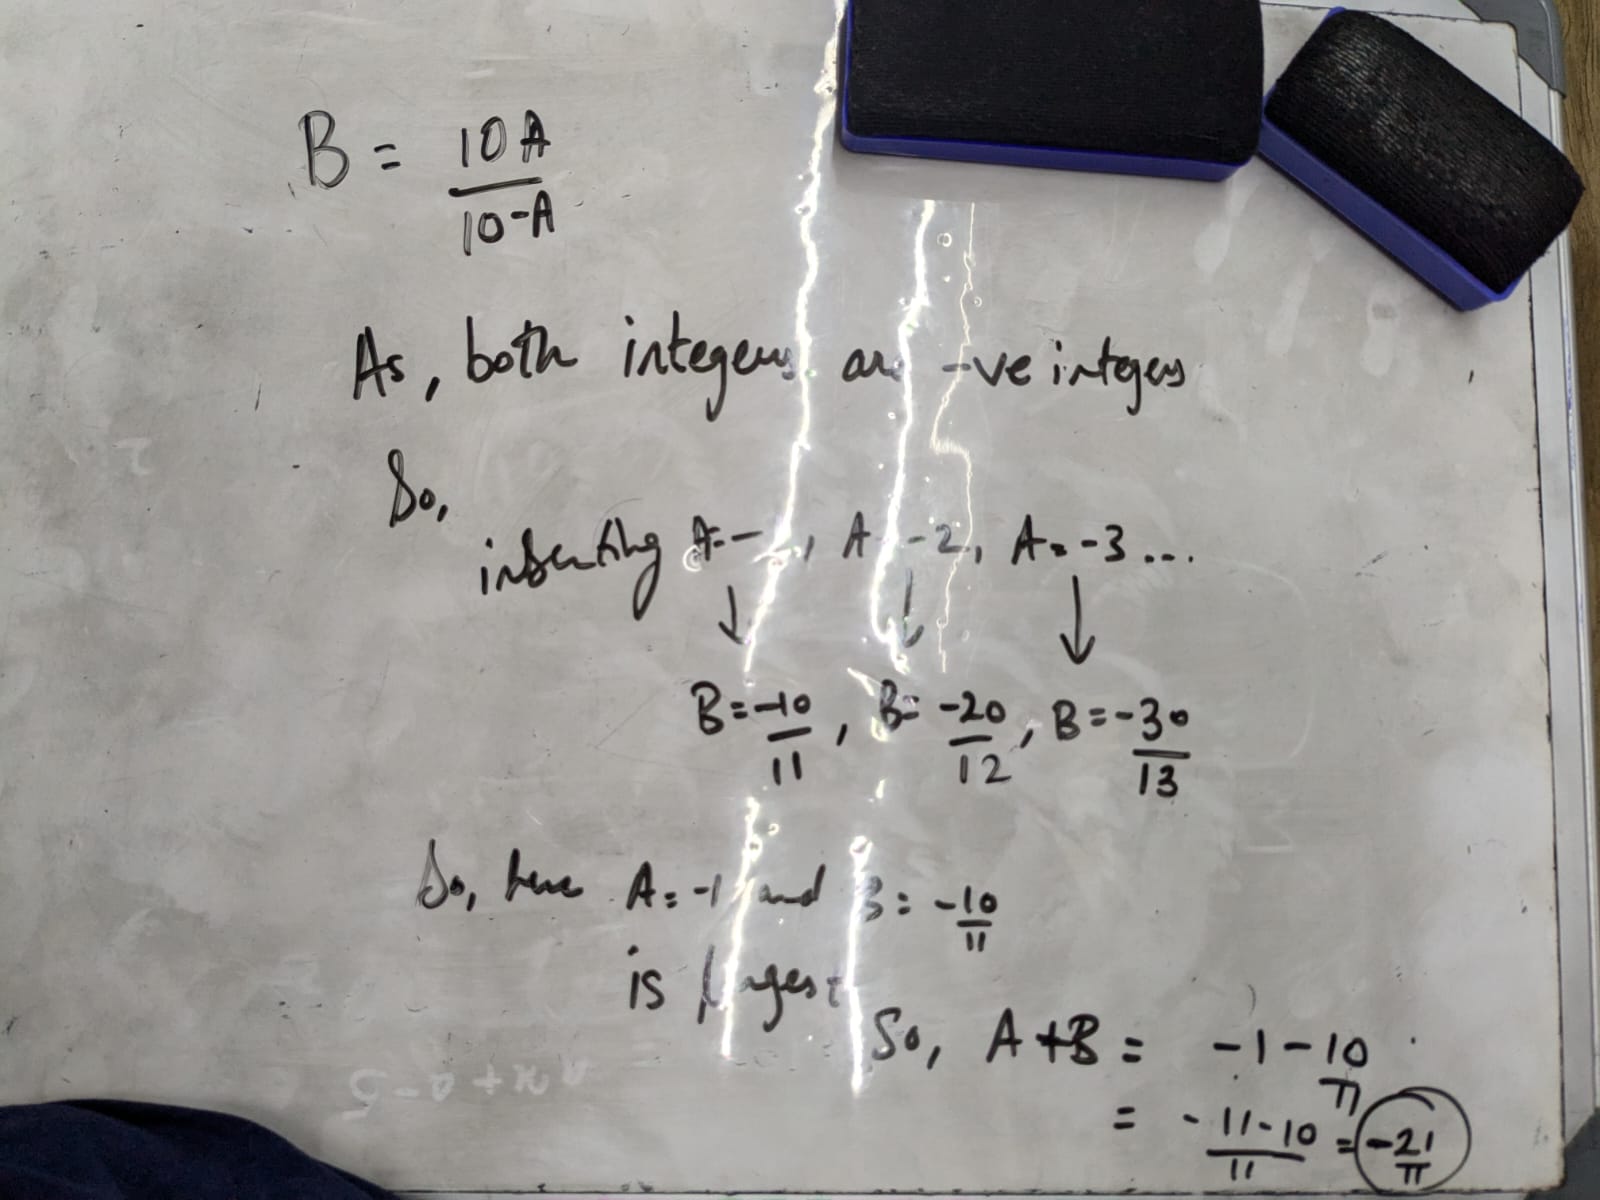 B = 10A / 10-A
As, both integers are -ve integers
So,
inserting A=- , A -2, A=-3...
B=-10/11, B= -20/12, B=-30/13
So, here A=-1 and B= -10/11
is largest
So, A+B = -1-10/11
= -11-10/11 = -21/11